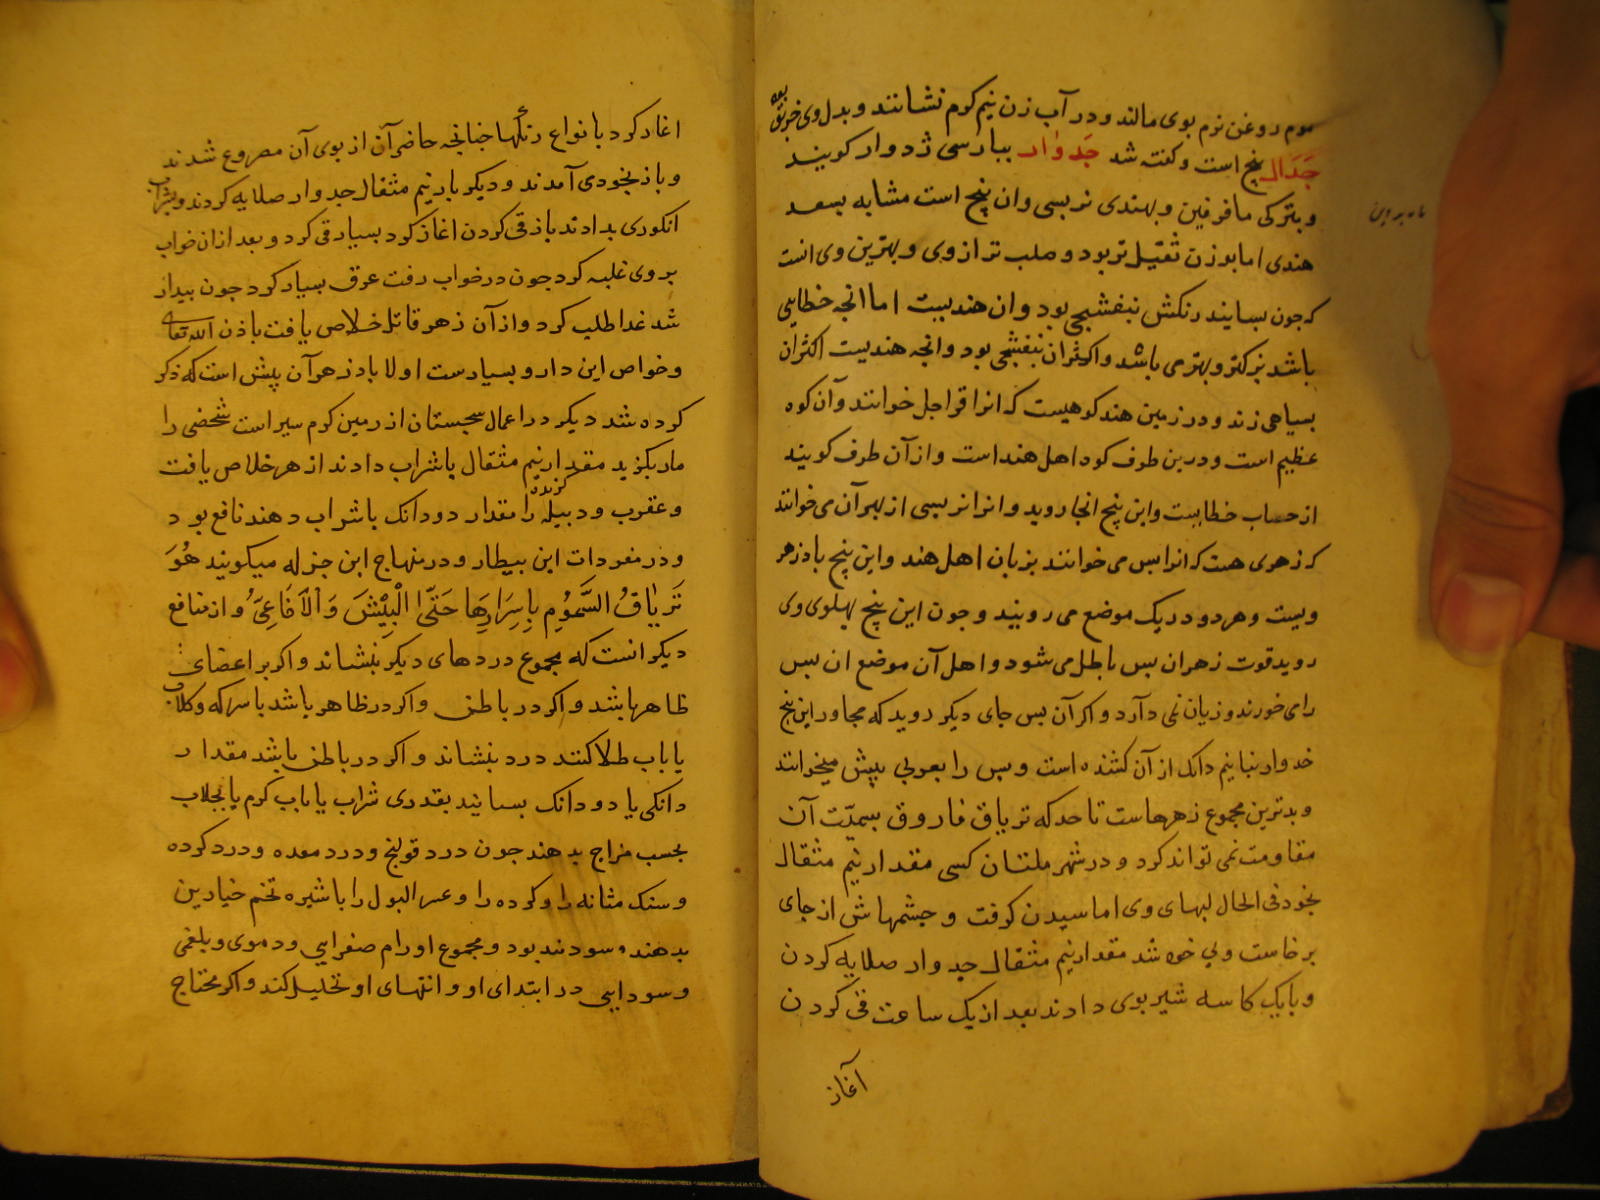 موم روغن نرم بوی مالند و در آب زن نیم کوم نشانند و بدل وی خربق
جَدَال بیخ است و کفته شد جَدوار بپارسی ژدوار کویند
و بترکی مافرفین و بهندی نربسی وان بیخ است مشابه بسعد
هندی اما بوزن ثقیل تر بود و صلب تر از وی و بهترین وی انست
که جون بسایند رنکش بنفشجی بود وان هندیست اما انجه خطایی
باشد بزرکتر و بهتر می باشد و اکثران بنفشجی بود وانجه هندیست اکثران
بسیاهی زند و در زمین هند کوهیست که انرا قراجل خوانند و آن کوه
عظیم است و درین طرف کوه اهل هند است و از آن طرف کویند
از حساب خطاییست و این بیخ انجا روید و انرا نربسی از بهر آن می خوانند
که زهری هست که انرا بس می خوانند بزبان اهل هند و این بیخ بادزهر
ویست و هر دو در یک موضع می رویند و جون این بیخ پهلوی وی
روید قوت زهر ان بس باطل می شود و اهل آن موضع ان بس
را می خورند و زیان نمی دارد و اکر آن بس جای دیکر روید که مجاور این بیخ
خدوار نبا نیم دانک از آن کشنده است و بس را بعربی بیش میخوانند
و بدترین مجموع زهرهاست تا حد که تریاق فاروق بسمیّت آن
مقاومت نمی تواند کرد و در شهر ملتان کسی مقدار نیم مثقال
بخورد فی الحال لبهای وی اماسیدن کرفت و جشمهاش از جای
برخاست و بی خود شد مقدار نیم مثقال جدوار صلایه کردن
و بایک کاسه شیر بوی دادند بعد از یک ساعت قی کردن
آغاز
اغاز کرد با نواع رنکها جنانجه حاضر آن از بوی آن مصروع شدند
و باز بخودی آمدند و دیکر بار نیم مثقال جدوار صلایه کردند و بشراب
انکوری بدادند باز قی کردن اغاز کرد بسیار قی کرد و بعد ازان خواب
بر وی غلبه کرد جون در خواب رفت عرق بسیار کرد جون بیدار
شد غدا طلب کرد و از آن زهر قاتل خلاص یافت باذن الله تعالی
و خواص این دارو بسیارست اولا بادزهر آن بیش است که ذکر
کرده شد دیکر در اعمال سجستان از زمین کرم سیر است شخصی را
مار بکزید مقدار نیم مثقال باشراب دادند از هر خلاص یافت
کزنده
و عقرب و دبیله را مقدار دو دانک باشراب دهند نافع بود
و در مفردات ابن بیطار و در منهاج ابن جزله میکویند هُوَ
تَریٰاقُ السَّموُمِ بِاِسَرارِهِا حَتّیٰ الْبیْشَ وَالْاَفَاعِیَّ و از منافع
دیکر انست که مجموع دردهای دیکر بنشاند و اکر بر اعضای
ظاهر باشد و اکر در باطن و اکر در ظاهر باشد باسرکه و کلاب
یا باب طلا کنند درد بنشاند و اکر در باطن باشد مقدار
دانکی یا دو دانک بسایند بقدری شراب یا باب کرم یا بجلاب
بحسب مزاج بدهند جون درد قولنج و درد معده و درد کرده
و سنک مثانه را و کرده را و عسر البول را باشیره تخم خیارین
بدهند سودمند بود و مجموع اورام صفرایی و دموی و بلغمی
و سودایی در ابتدای او و انتهای او تحلیل کند و اکر محتاج